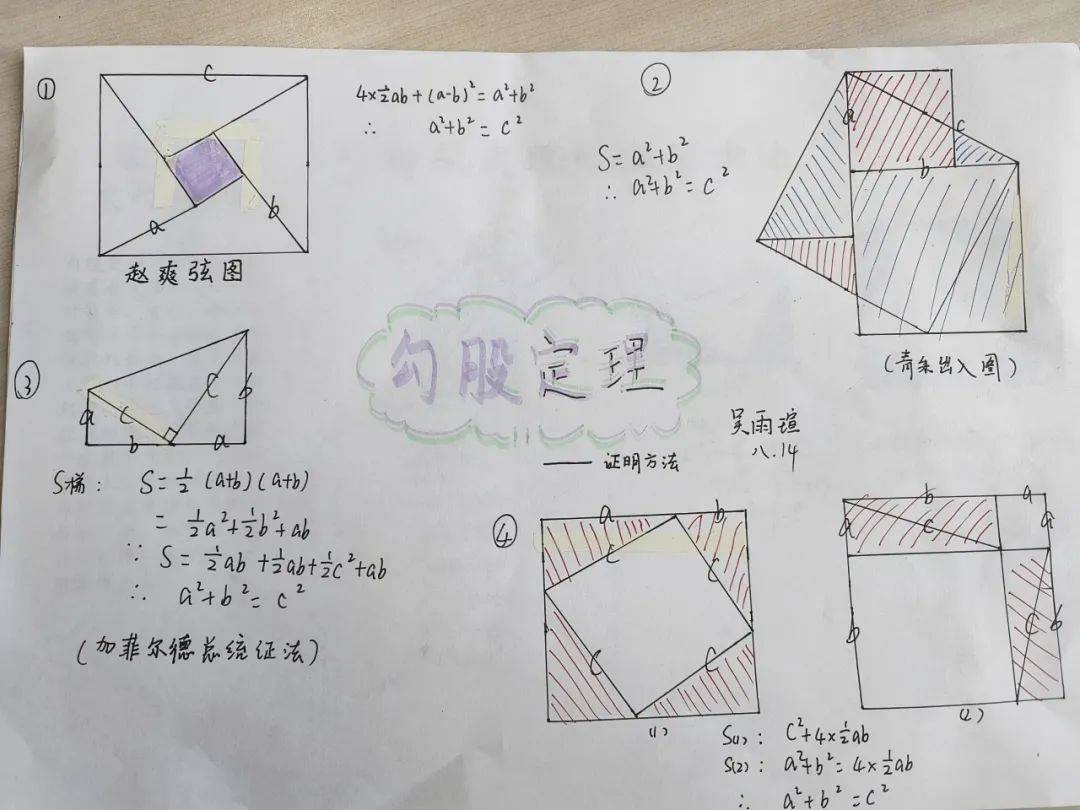 ①
c
a
b
赵爽弦图
4×½ab+(a-b)²=a²+b²
∴ a²+b²=c²
②
S=a²+b²
∴ a²+b²=c²
a
c
b
(青朱出入图)
勾股定理
—— 证明方法
吴雨瑄
八.14
③
a
c
b
c
b
a
S梯: S=½(a+b)(a+b)
=½a²+½b²+ab
∵ S=½ab+½ab+½c²+ab
∴ a²+b²=c²
(加菲尔德总统证法)
④
a
b
c
c
c
c
(1)
b
a
a
c
a
b
c
b
(2)
S(1): c²+4×½ab
S(2): a²+b²=4×½ab
∴ a²+b²=c²